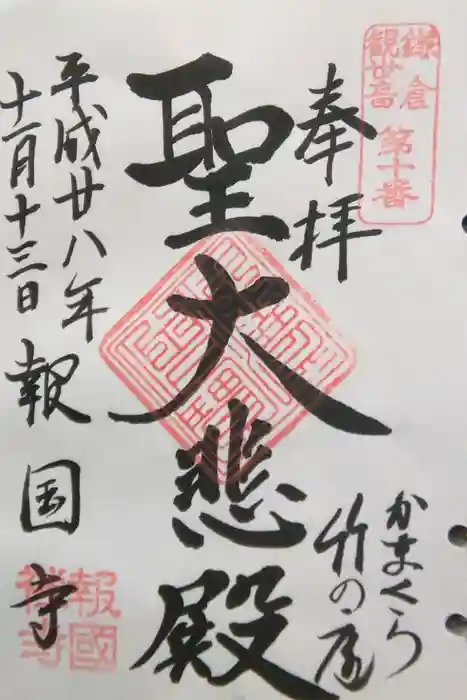 鎌倉
観音廿
第十番
奉拝
かまくら
竹の庭
聖大悲殿
平成廿八年
十一月十三日
報国寺
報國
禅寺